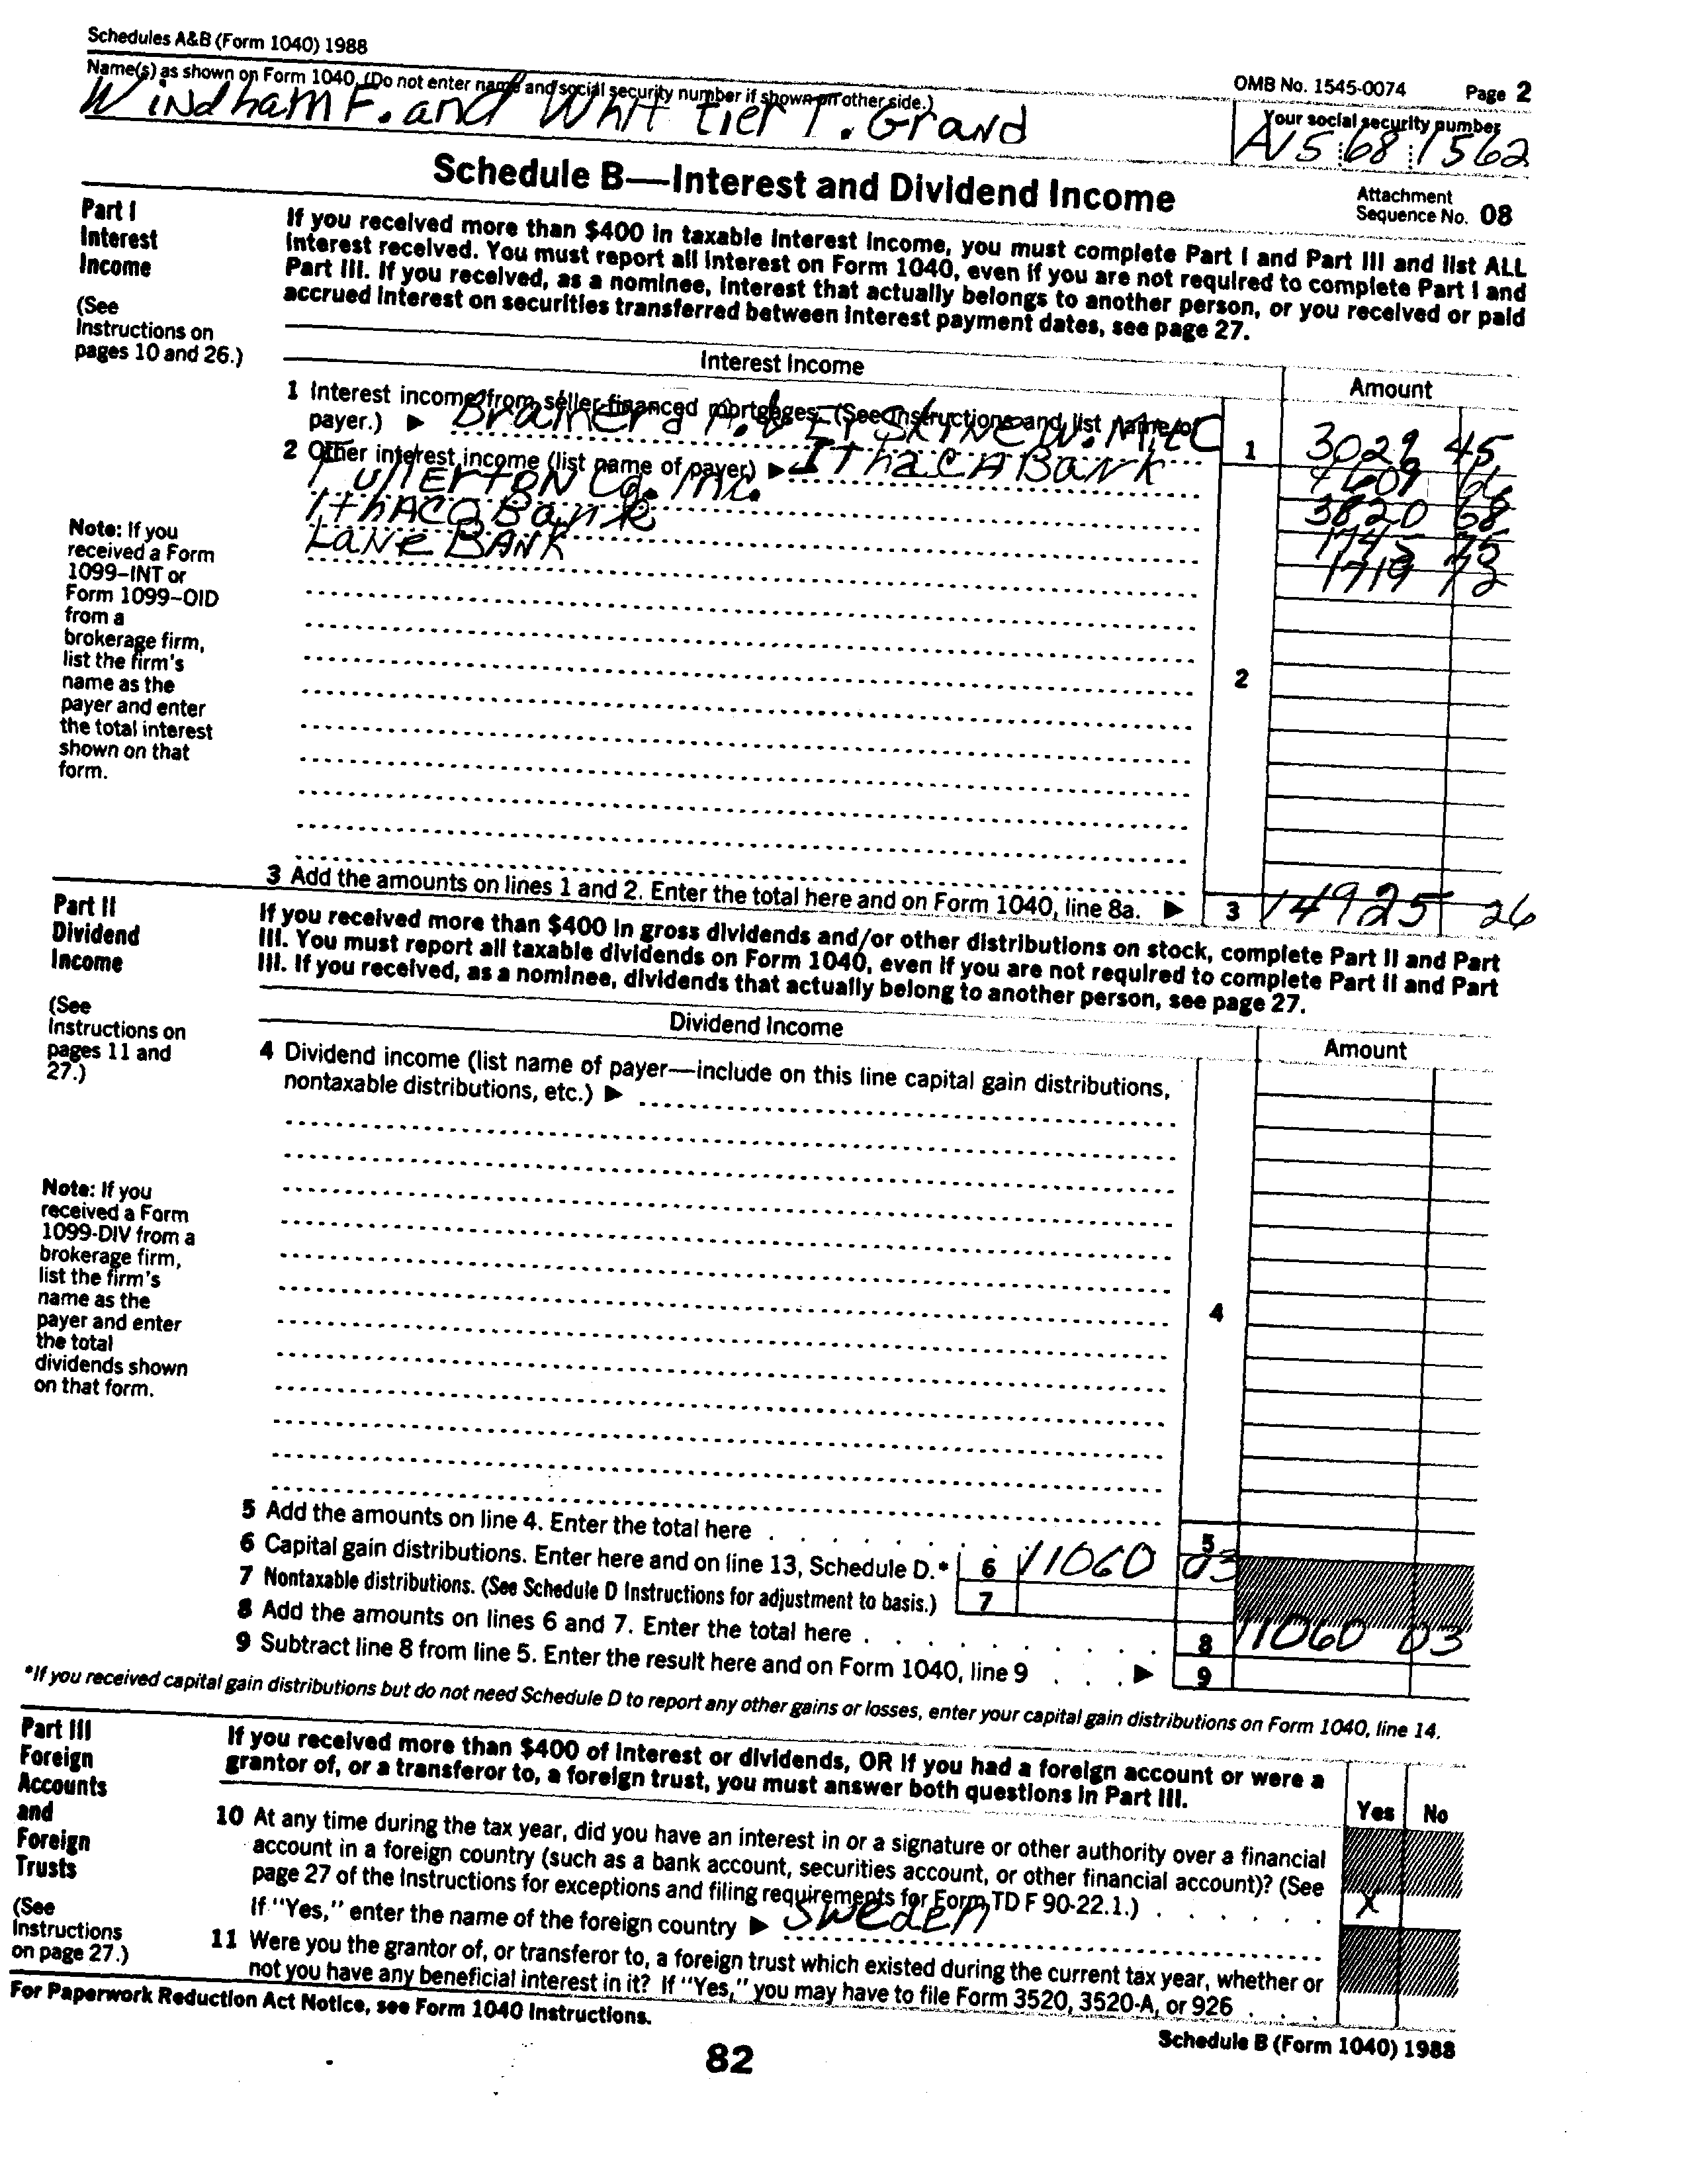 Schedules A&B (Form 1040) 1988
OMB No. 1545-0074 Page 2
Name(s) as shown on Form 1040. (Do not enter name and social security number if shown on other side.)
Windham F. and Whittier T. Grand
Your social security number
68 1562
Schedule B—Interest and Dividend Income
Attachment
Sequence No. 08
Part I
Interest
Income
(See
Instructions on
pages 10 and 26.)
If you received more than $400 in taxable interest income, you must complete Part I and Part III and list ALL
interest received. You must report all interest on Form 1040, even if you are not required to complete Part I and
Part III. If you received, as a nominee, interest that actually belongs to another person, or you received or paid
accrued interest on securities transferred between interest payment dates, see page 27.
Interest Income
Amount
1 Interest income from seller-financed mortgages. (See Instructions and list name of
payer.) ▶ Brainerd A. & Erskine W.
1 3029 45
2 Other interest income (list name of payer) ▶ Ithaca Bank
4609 66
Fullerton Co. Inc.
3820 68
Ithaca Bank
1745 75
Lane BANK
1719 72
2
Note: If you
received a Form
1099–INT or
Form 1099–OID
from a
brokerage firm,
list the firm's
name as the
payer and enter
the total interest
shown on that
form.
3 Add the amounts on lines 1 and 2. Enter the total here and on Form 1040, line 8a. ▶ 3 14925 26
Part II
Dividend
Income
(See
Instructions on
pages 11 and
27.)
If you received more than $400 in gross dividends and/or other distributions on stock, complete Part II and Part
III. You must report all taxable dividends on Form 1040, even if you are not required to complete Part II and Part
III. If you received, as a nominee, dividends that actually belong to another person, see page 27.
Dividend Income
Amount
4 Dividend income (list name of payer—include on this line capital gain distributions,
nontaxable distributions, etc.) ▶
4
Note: If you
received a Form
1099-DIV from a
brokerage firm,
list the firm's
name as the
payer and enter
the total
dividends shown
on that form.
5 Add the amounts on line 4. Enter the total here . . . . . . . . 5
6 Capital gain distributions. Enter here and on line 13, Schedule D.* 6 11060 03
7 Nontaxable distributions. (See Schedule D Instructions for adjustment to basis.) 7
8 Add the amounts on lines 6 and 7. Enter the total here . . . . . . . . . . 8 11060 03
9 Subtract line 8 from line 5. Enter the result here and on Form 1040, line 9 . . . ▶ 9
*If you received capital gain distributions but do not need Schedule D to report any other gains or losses, enter your capital gain distributions on Form 1040, line 14.
Part III
Foreign
Accounts
and
Foreign
Trusts
(See
Instructions
on page 27.)
If you received more than $400 of interest or dividends, OR if you had a foreign account or were a
grantor of, or a transferor to, a foreign trust, you must answer both questions in Part III.
Yes No
10 At any time during the tax year, did you have an interest in or a signature or other authority over a financial
account in a foreign country (such as a bank account, securities account, or other financial account)? (See
page 27 of the Instructions for exceptions and filing requirements for Form TD F 90-22.1.) . . . . . . X
If "Yes," enter the name of the foreign country ▶ Sweden
11 Were you the grantor of, or transferor to, a foreign trust which existed during the current tax year, whether or
not you have any beneficial interest in it? If "Yes," you may have to file Form 3520, 3520-A, or 926 . . .
For Paperwork Reduction Act Notice, see Form 1040 Instructions.
Schedule B (Form 1040) 1988
82